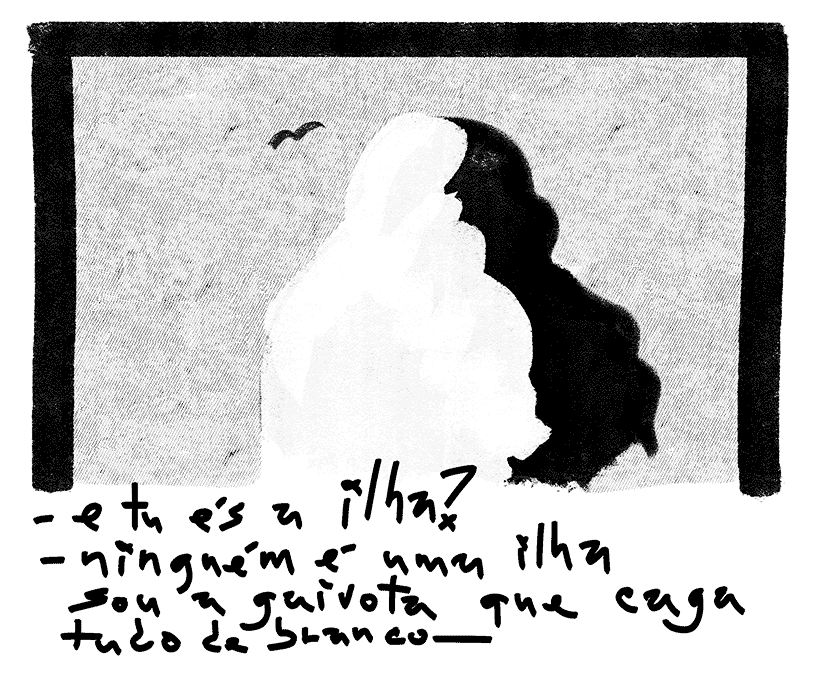 - e tu és a ilha?
- ninguém é uma ilha
sou a gaivota que caga
tudo de branco—